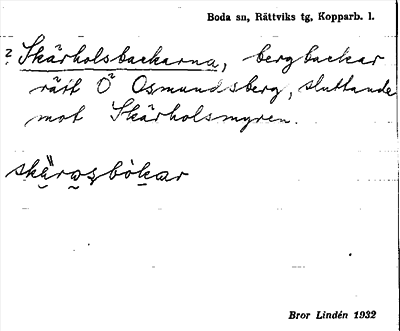 Boda sn, Rättviks tg, Kopparb. l.
? Skärholsbackarna, bergbackar
rätt Ö Osmundsberg, sluttande
mot Skärholsmyren.
Bror Lindén 1932